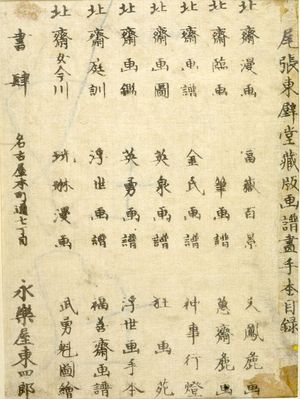 尾張東壁堂藏版画譜畫手本目録
北齋漫画 富嶽百景 文鳳麁画
北齋臨画 一筆画譜 蕙齋麁画
北齋画譜 金氏画譜 神事行燈
北齋画圖 英泉画譜 狂画苑
北齋画鑑 英勇画譜 浮世画手本
北齋庭訓 浮世画譜 福善齋画譜
北齋女今川 漫画 武勇魁圖繪
書肆 名古屋本町通七丁目 永樂屋東四郎